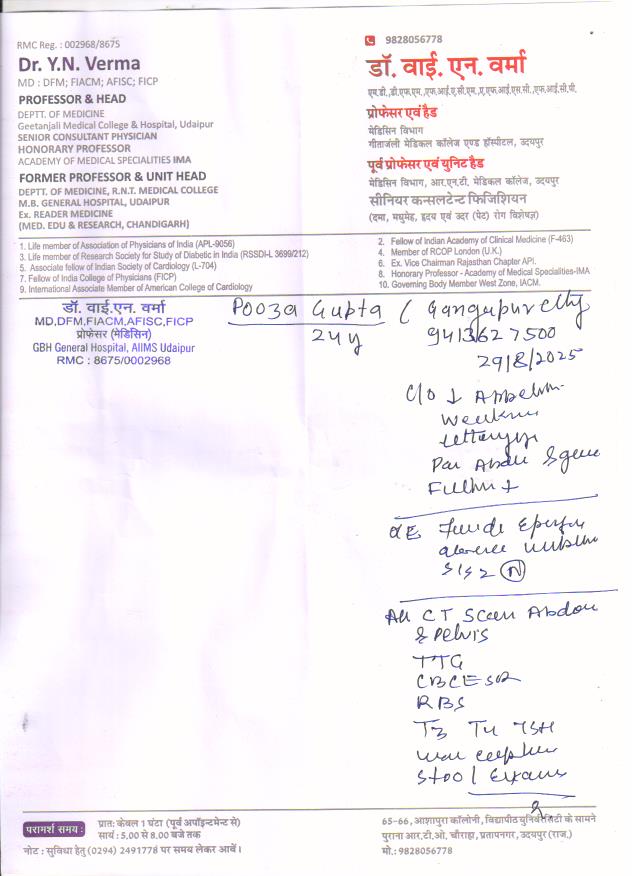 RMC Reg. : 002968/8675
Dr. Y.N. Verma
MD : DFM; FIACM; AFISC; FICP
PROFESSOR & HEAD
DEPTT. OF MEDICINE
Geetanjali Medical College & Hospital, Udaipur
SENIOR CONSULTANT PHYSICIAN
HONORARY PROFESSOR
ACADEMY OF MEDICAL SPECIALITIES IMA
FORMER PROFESSOR & UNIT HEAD
DEPTT. OF MEDICINE, R.N.T. MEDICAL COLLEGE
M.B. GENERAL HOSPITAL, UDAIPUR
Ex. READER MEDICINE
(MED. EDU & RESEARCH, CHANDIGARH)
9828056778
डॉ. वाई. एन. वर्मा
एम.डी.,डी.एफ.एम.,एफ.आई.ए.सी.एम.,ए.एफ.आई.एस.सी.,एफ.आई.सी.पी.
प्रोफेसर एवं हैड
मेडिसिन विभाग
गीतांजली मेडिकल कॉलेज एण्ड हॉस्पीटल, उदयपुर
पूर्व प्रोफेसर एवं युनिट हैड
मेडिसिन विभाग, आर.एन.टी. मेडिकल कॉलेज, उदयपुर
सीनियर कन्सलटेन्ट फिजिशियन
(दमा, मधुमेह, हृदय एवं उदर (पेट) रोग विशेषज्ञ)
1. Life member of Association of Physicians of India (APL-9056)
3. Life member of Research Society for Study of Diabetic in India (RSSDI-L 3699/212)
5. Associate fellow of Indian Society of Cardiology (L-704)
7. Fellow of India College of Physicians (FICP)
9. International Associate Member of American College of Cardiology
2. Fellow of Indian Academy of Clinical Medicine (F-463)
4. Member of RCOP London (U.K.)
6. Ex. Vice Chairman Rajasthan Chapter API.
8. Honorary Professor - Academy of Medical Specialities-IMA
10. Governing Body Member West Zone, IACM.
डॉ. वाई.एन. वर्मा
MD,DFM,FIACM,AFISC,FICP
प्रोफेसर (मेडिसिन)
GBH General Hospital, AIIMS Udaipur
RMC : 8675/0002968
Pooza Gupta ( Gangapur city
24 y
9413627500
29/8/2025
C/O ↓
Par
+
S1S2 (N)
CT Scan Abdo
& Pelvis
TTG
CBC ESR
RBS
T3 T4 TSH
Stool Exam
परामर्श समय :
प्रातः केवल 1 घंटा (पूर्व अपॉइन्टमेन्ट से)
सायं : 5.00 से 8.00 बजे तक
नोट : सुविधा हेतु (0294) 2491778 पर समय लेकर आवें।
65-66, आशापुरा कॉलोनी, विद्यापीठ युनिवर्सिटी के सामने
पुराना आर.टी.ओ. चौराहा, प्रतापनगर, उदयपुर (राज.)
मो.: 9828056778